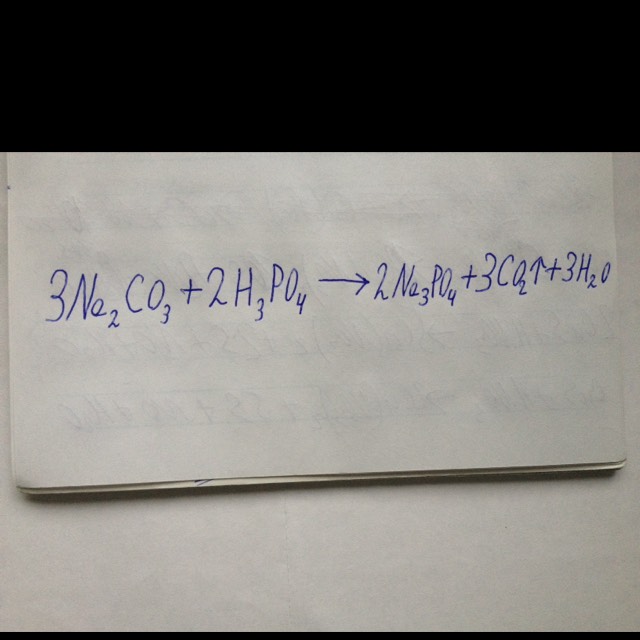 3Na₂CO₃ + 2H₃PO₄ → 2Na₃PO₄ + 3CO₂↑ + 3H₂O